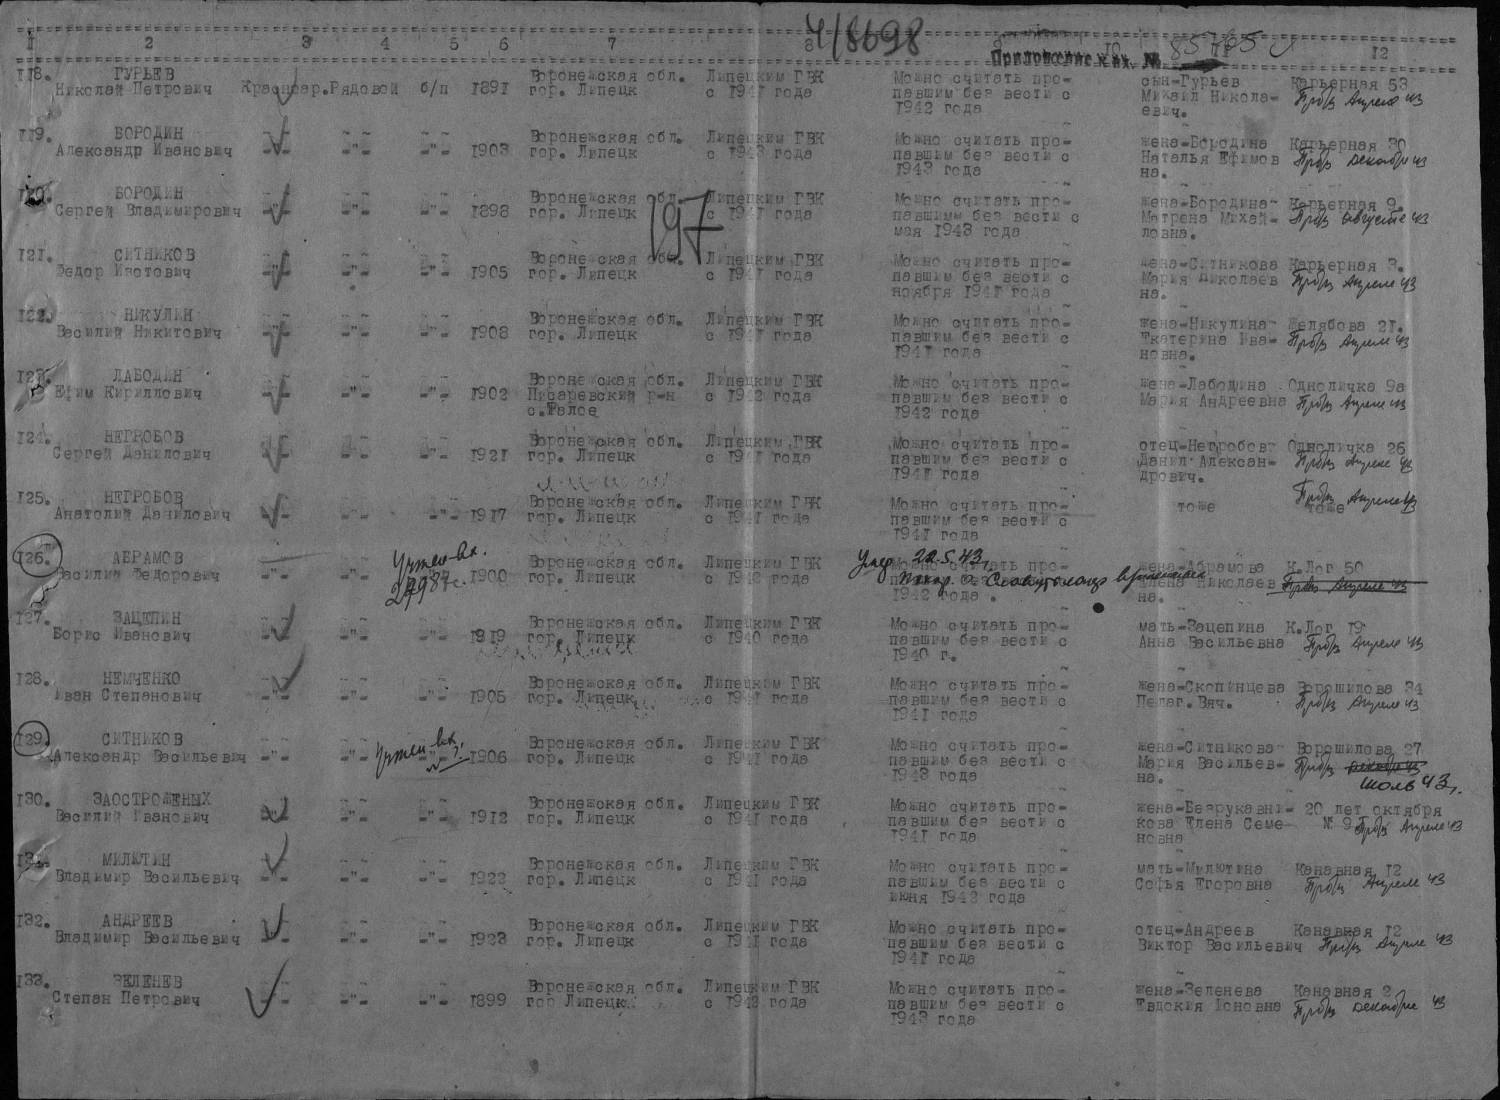 4/8698
Приложение к вх. №
1 2 3 4 5 6 7 8 9 10 12
118. ГУРЬЕВ Воронежская обл. Липецким ГВК Можно считать про- сын-Гурьев Карьерная 53
Николай Петрович Красноар. Рядовой б/п 1891 гор. Липецк с 1941 года павшим без вести с Михаил Никола- Апреле 43
1942 года евич.
119. БОРОДИН Воронежская обл. Липецким ГВК Можно считать про- жена-Бородина Карьерная 30
Александр Иванович -"- -"- -"- 1903 гор. Липецк с 1943 года павшим без вести с Наталья Ефимов декабре 43
1943 года на.
120. БОРОДИН Воронежская обл. Липецким ГВК Можно считать про- жена-Бородина Карьерная 9.
Сергей Владимирович -"- -"- -"- 1898 гор. Липецк с 1941 года павшимм без вести с Матрена Михай- августе 43
197
мая 1943 года ловна.
121. СИТНИКОВ Воронежская обл. Липецким ГВК Можно считать про- жена-Ситникова Карьерная 3.
Федор Изотович -"- -"- -"- 1905 гор. Липецк с 1941 года павшим без вести с Мария Николаев Апреле 43
ноября 1941 года на.
122. НИКУЛИН Воронежская обл. Липецким ГВК Можно считать про- жена-Никулина Желябова 21.
Василий Никитович -"- -"- -"- 1908 гор. Липецк с 1941 года павшим без вести с Екатерина Ива- Апреле 43
1941 года новна.
123. ЛАБОДИН Воронежская обл. Липецким ГВК Можно считать про- жена-Лабодина Одноличка 9а
Ефим Кириллович -"- -"- -"- 1902 Писаревский р-н с 1942 года павшим без вести с Мария Андреевна Апреле 43
с.Фалое 1942 года
124. НЕГРОБОВ Воронежская обл. Липецким ГВК Можно считать про- отец-Негробов Одноличка 26
Сергей Данилович -"- -"- -"- 1921 гор. Липецк с 1941 года павшим без вести с Данил Алексан- Апреле 43
1941 года дрович.
125. НЕГРОБОВ Воронежская обл. Липецким ГВК Можно считать про- тоже тоже Апреле 43
Анатолий Данилович -"- -"- -"- 1917 гор. Липецк с 1941 года павшим без вести с
1941 года
126. АБРАМОВ Воронежская обл. Липецким ГВК Умер 22.5.43 Можно считать про- жена-Абрамова К.Лог 50
Василий Федорович -"- -"- 1900 гор. Липецк с 1942 года Елена Николаев Апреле 43
1942 года. на.
127. ЗАЦЕПИН Воронежская обл. Липецким ГВК Можно считать про- мать-Зацепина К.Лог 19
Борис Иванович -"- -"- -"- 1919 гор. Липецк с 1940 года павшим без вести с Анна Васильевна Апреле 43
1940 г.
128. НЕМЧЕНКО Воронежская обл. Липецким ГВК Можно считать про- жена-Скопинцева Ворошилова 34
Иван Степанович -"- -"- -"- 1905 гор. Липецк с 1941 года павшим без вести с Пелаг. Вяч. Апреле 43
1941 года
129. СИТНИКОВ Воронежская обл. Липецким ГВК Можно считать про- жена-Ситникова Ворошилова 27
Александр Васильевич -"- -"- -"- 1906 гор. Липецк с 1941 года павшим без вести с Мария Васильев- декабре 43
1943 года на. июль 43 г.
130. ЗАОСТРОЖЕНЫХ Воронежская обл. Липецким ГВК Можно считать про- жена-Безрукавни- 20 лет октября
Василий Иванович -"- -"- -"- 1912 гор. Липецк с 1941 года павшим без вести с кова Елена Семе- № 9 Апреле 43
1941 года новна
131. МИЛЮТИН Воронежская обл. Липецким ГВК Можно считать про- мать-Милютина Канавная 12
Владимир Васильевич -"- -"- -"- 1922 гор. Липецк с 1941 года павшим без вести с Софья Егоровна Апреле 43
июня 1942 года
132. АНДРЕЕВ Воронежская обл. Липецким ГВК Можно считать про- отец-Андреев Канавная 12
Владимир Васильевич -"- -"- -"- 1923 гор. Липецк с 1941 года павшим без вести с Виктор Васильевич Апреле 43
1941 года
133. ЗЕЛЕНЕВ Воронежская обл. Липецким ГВК Можно считать про- жена-Зеленева Канавная 2
Степан Петрович -"- -"- -"- 1899 гор Липецк с 1942 года павшим без вести с Евдокия Ионовна декабре 43
1943 года